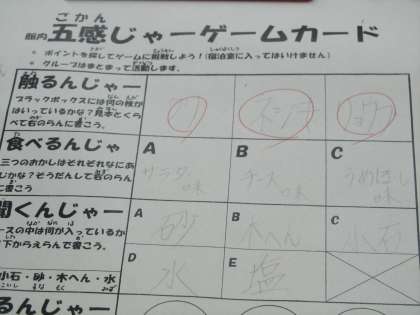 こかん
館内 五感じゃーゲームカード
* ポイントを探してゲームに挑戦しよう!(宿泊室に入ってはいけません)
* グループはまとまって活動します。
触るんじゃー
ブラックボックスには何の枝が
はいっているかな?見本とくら
べて右のらんに書こう。
食べるんじゃ
A
B
C
三つのおかしはそれぞれなにあ
じかな?そうだんして右のらん
に書こう
サラダ味
チーズ味
うめぼし味
聞くんじゃー
A
B
C
ースの中は何が入っているか
下からえらんで書こう。
砂
木へん
小石
小石・砂・木へん・水
D
E
水
塩
るんじゃー